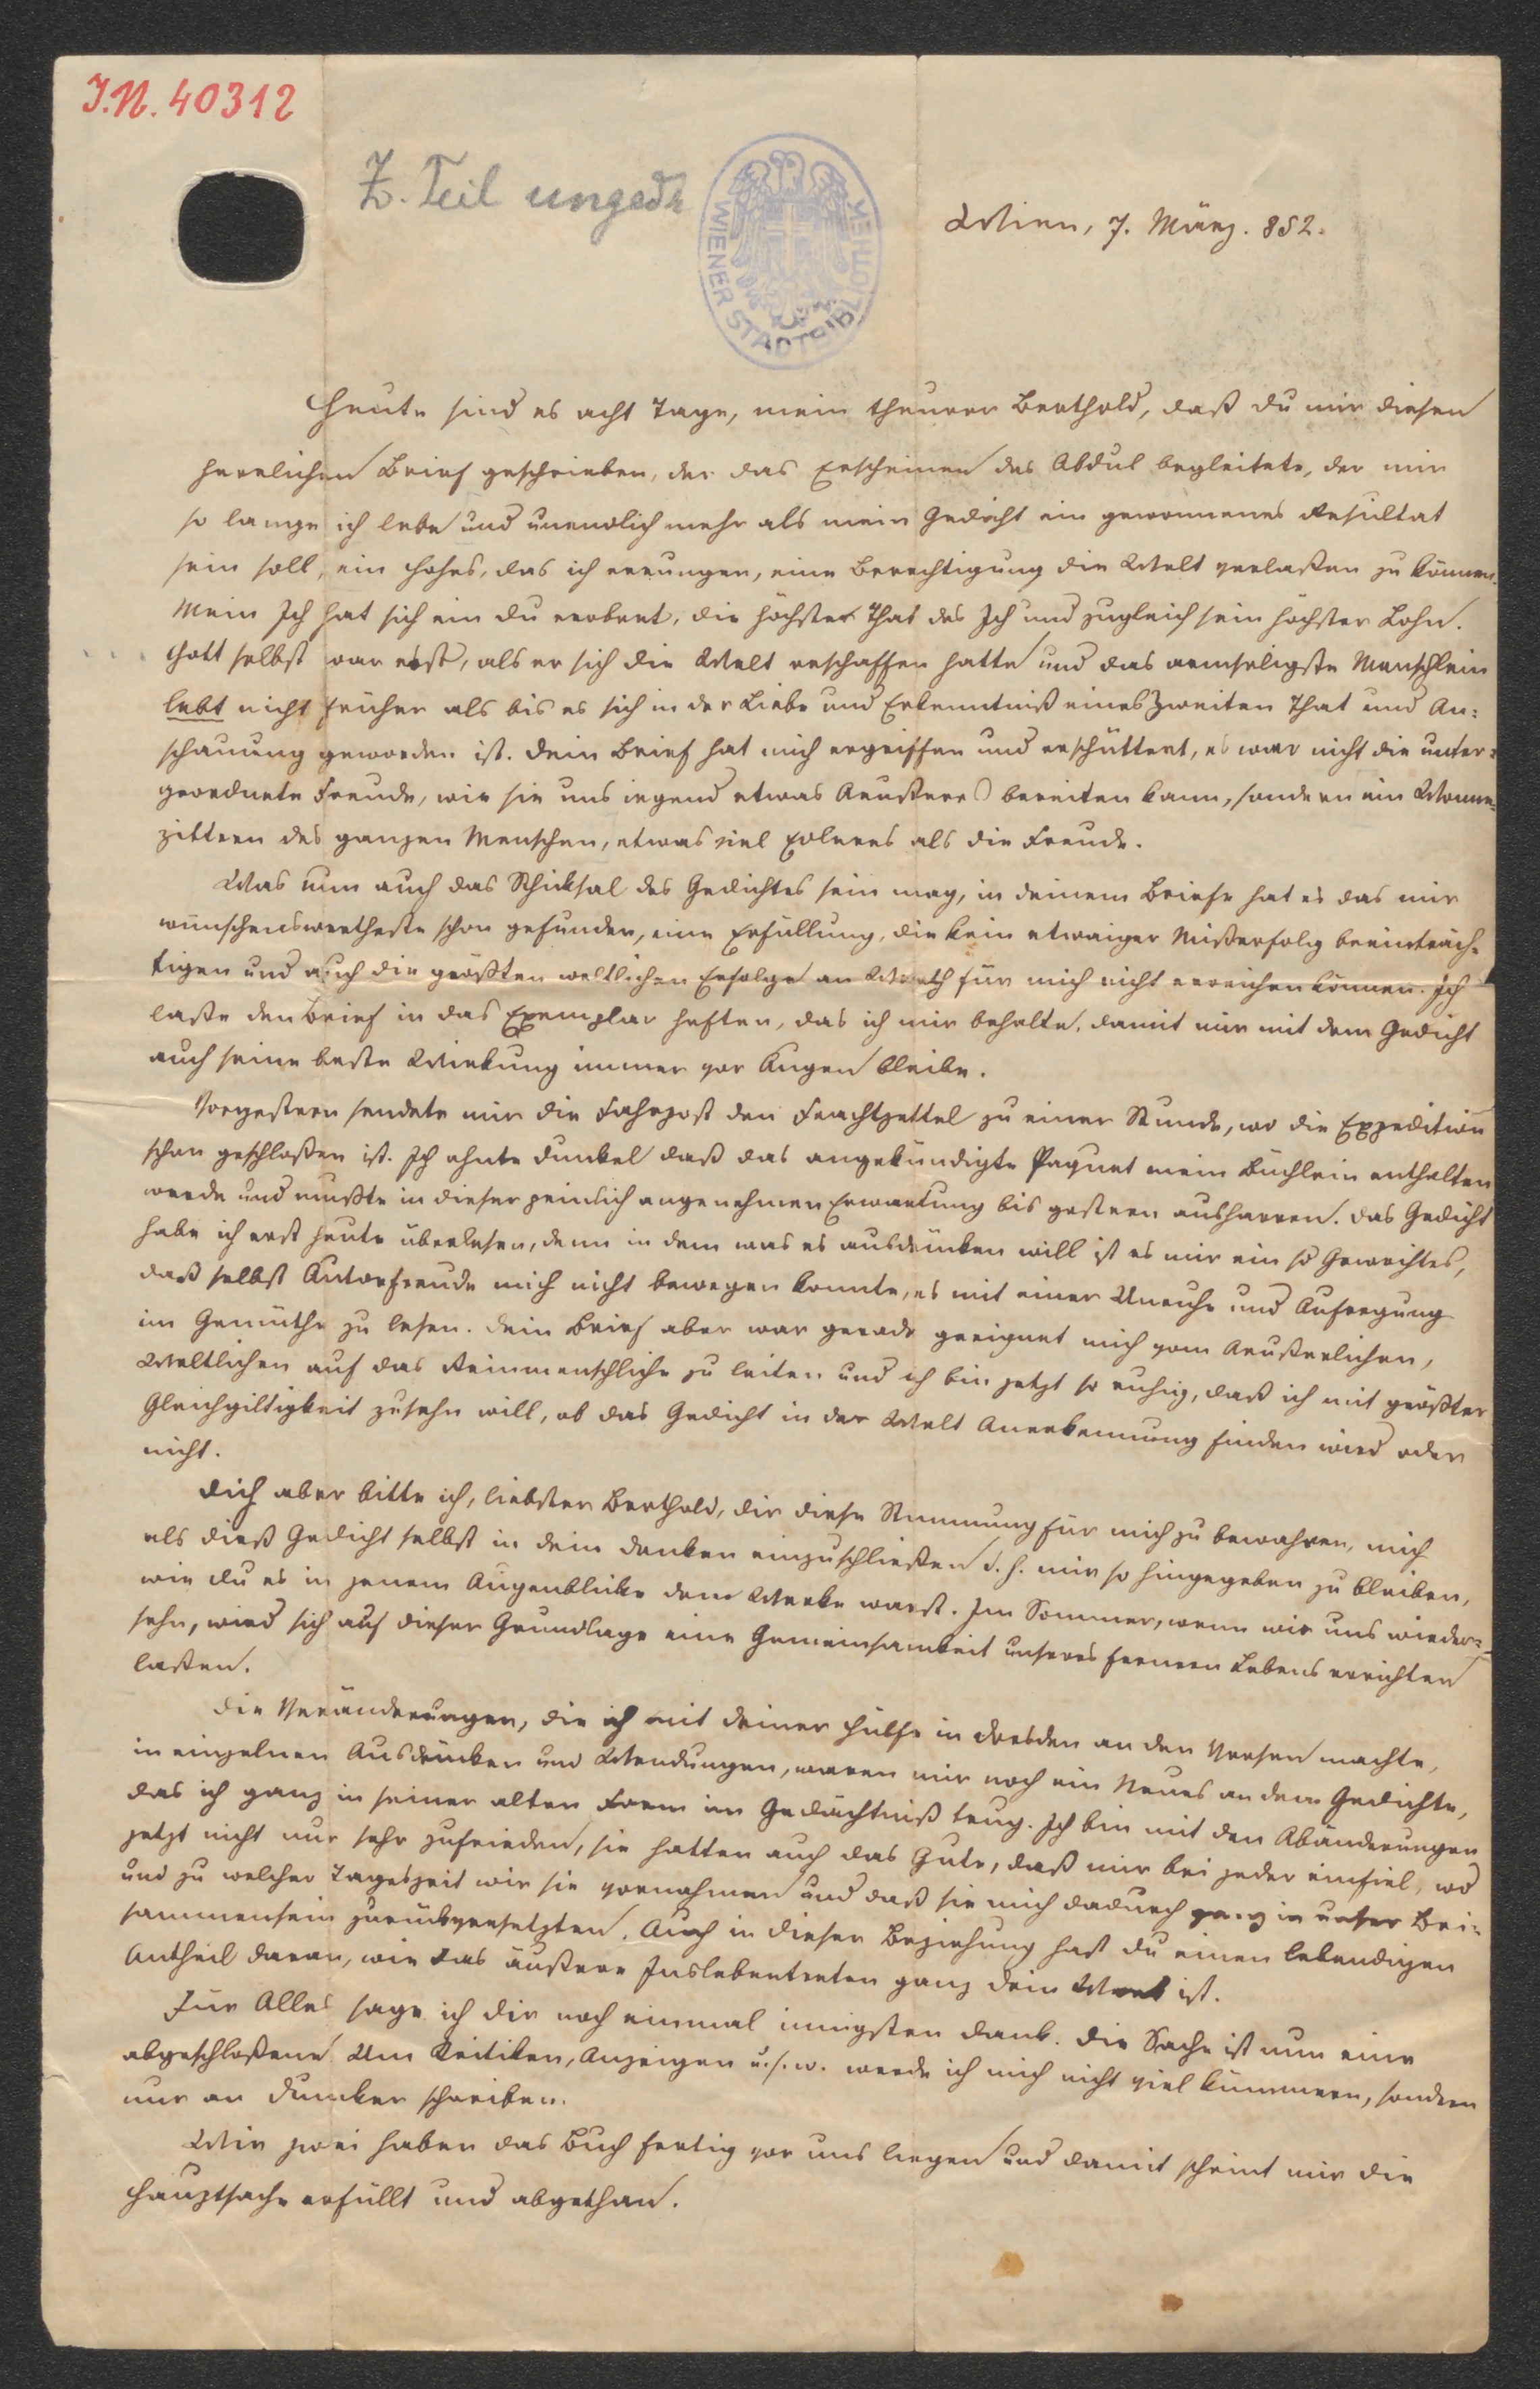 J.N. 40312
Z. Teil ungedr
WIENER STADTBIBLIOTHEK
Wien, 7. März. 852.
Heute sind es acht Tage, mein theurer Berthold, daß du mir diesen
herrlichen Brief geschrieben, der das Erscheinen des Abdul begleitete, der mir
so lange ich lebe und unendlich mehr als mein Gedicht ein gewonnenes Resultat
sein soll, ein Hohes, das ich errungen, eine Berechtigung die Welt verlaßen zu können.
Mein Ich hat sich ein du erobert, die höchste That des Ich und zugleich sein höchster Lohn.
Gott selbst war erst, als er sich die Welt erschaffen hatte und das armseligste Menschlein
lebt nicht früher als bis es sich in der Liebe und Erkenntniß eines Zweiten That und An=
schauung geworden ist. Dein Brief hat mich ergriffen und erschüttert, es war nicht die unter=
geordnete Freude, wie sie uns irgend etwas Aeußeres bereiten kann, sondern ein Wonne=
zittern des ganzen Menschen, etwas viel Edleres als die Freude.
Was nun auch das Schicksal des Gedichtes sein mag, in deinem Briefe hat es das mir
wünschenswertheste schon gefunden, eine Erfüllung, die kein etwaiger Mißerfolg beeinträch=
tigen und auch die größten weltlichen Erfolge an Werth für mich nicht erreichen können. Ich
laße den Brief in das Exemplar heften, das ich mir behalte, damit mir mit dem Gedicht
auch seine beste Wirkung immer vor Augen bleibe.
Vorgestern sendete mir die Fahrpost den Frachtzettel zu einer Stunde, wo die Expedition
schon geschloßen ist. Ich ahnte dunkel daß das angekündigte Paquet mein Büchlein enthalten
werde und mußte in dieser peinlich angenehmen Erwartung bis gestern ausharren. Das Gedicht
habe ich erst heute überlesen, denn in dem was es ausdrücken will ist es mir ein so Geweihtes,
daß selbst Autorfreude mich nicht bewegen konnte, es mit einer Unruhe und Aufregung
im Gemüthe zu lesen. Dein Brief aber war gerade geeignet mich vom Aeußerlichen,
Weltlichen auf das Reinmenschliche zu leiten und ich bin jetzt so ruhig, daß ich mit größter
Gleichgiltigkeit zusehn will, ob das Gedicht in der Welt Anerkennung finden wird oder
nicht.
Dich aber bitte ich, liebster Berthold, dir diese Stimmung für mich zu bewahren, mich
als dieß Gedicht selbst in dein Denken einzuschließen d. h. mir so hingegeben zu bleiben,
wie du es in jenem Augenblicke dem Werke warst. Im Sommer, wenn wir uns wieder=
sehn, wird sich auf dieser Grundlage eine Gemeinsamkeit unseres fernern Lebens errichten
laßen.
Die Veränderungen, die ich mit deiner Hülfe in Dresden an den Versen machte,
in einzelnen Ausdrücken und Wendungen, waren mir noch ein Neues an dem Gedichte,
das ich ganz in seiner alten Form im Gedächtniß trug. Ich bin mit den Abänderungen
jetzt nicht nur sehr zufrieden, sie hatten auch das Gute, daß mir bei jeder einfiel, wo
und zu welcher Tageszeit wir sie vornahmen und daß sie mich dadurch ganz in unser Bei=
sammensein zurückversetzten. Auch in dieser Beziehung hast du einen lebendigen
Antheil daran, wie das äußere Inslebentreten ganz dein Werk ist.
Für Alles sage ich dir noch einmal innigsten Dank. Die Sache ist nun eine
abgeschloßene. Um Kritiken, Anzeigen u. s. w. werde ich mich nicht viel kümmern, sondern
nur an Duncker schreiben.
Wir zwei haben das Buch fertig vor uns liegen und damit scheint mir die
Hauptsache erfüllt und abgethan.